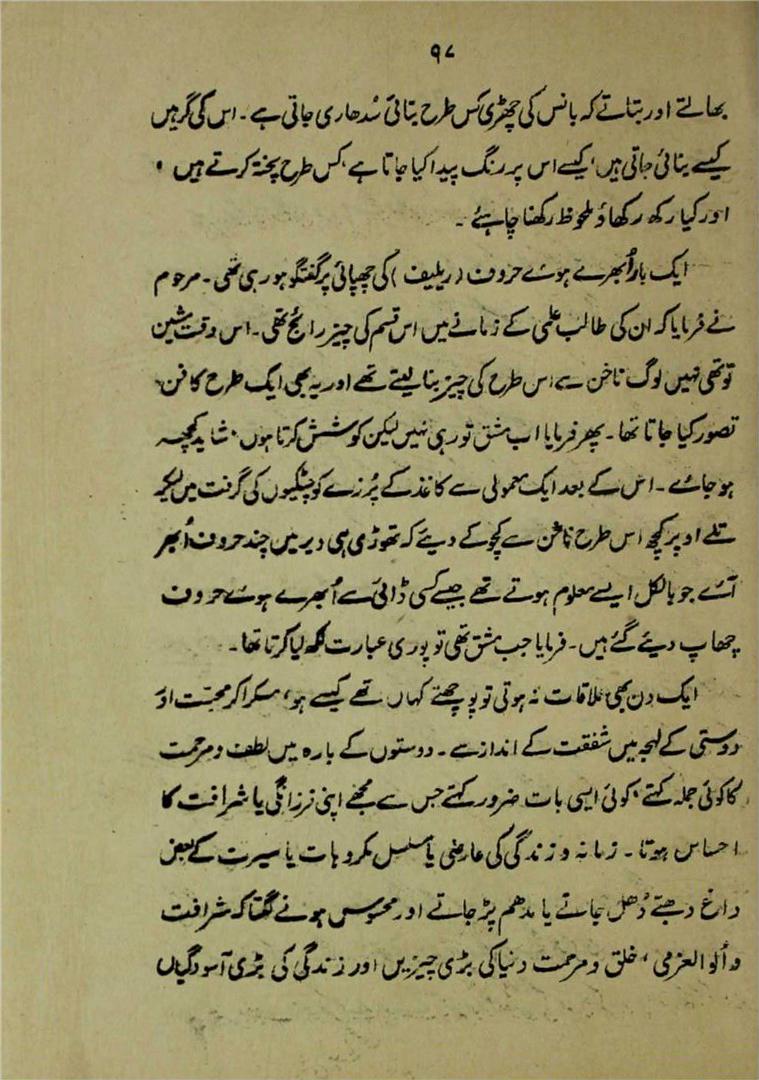 ۹۷
بھالتے اور بتاتے کہ بانس کی چھڑی کس طرح بتائی سُدھاری جاتی ہے۔ اس کی گرہیں
کیسے بنائی جاتی ہیں، کیسے اس پر رنگ پیدا کیا جاتا ہے، کس طرح پختہ کرتے ہیں،
اور کیا رکھ رکھاؤ ملحوظ رکھنا چاہئے۔
ایک بار اُبھرے ہوئے حروف (ریلیف) کی چھپائی پر گفتگو ہو رہی تھی۔ مرحوم
نے فرمایا کہ ان کی طالب علمی کے زمانے میں اس قسم کی چیز رائج تھی۔ اس وقت مشین
تو تھی نہیں لوگ ناخن سے اس طرح کی چیز بنا لیتے تھے اور یہ بھی ایک طرح کا فن
تصور کیا جاتا تھا۔ پھر فرمایا اب مشق تو رہی نہیں لیکن کوشش کرتا ہوں، شاید کچھ
ہو جائے۔ اس کے بعد ایک معمولی سے کاغذ کے پُرزے کو چٹکیوں کی گرفت میں لیکر
تلے اوپر کچھ اس طرح ناخن سے کچوکے دیئے کہ تھوڑی ہی دیر میں چند حروف اُبھر
آئے جو بالکل ایسے معلوم ہوتے تھے جیسے کسی ڈائی سے اُبھرے ہوئے حروف
چھاپ دیئے گئے ہیں۔ فرمایا جب مشق تھی تو پوری عبارت لکھ لیا کرتا تھا۔
ایک دن بھی ملاقات نہ ہوتی تو پوچھتے کہاں تھے کیسے ہو، مسکرا کر محبّت اور
دوستی کے لہجہ میں شفقت کے انداز سے۔ دوستوں کے بارہ میں لطف و مرحمت
کا کوئی جملہ کہتے، کوئی ایسی بات ضرور کہتے جس سے مجھے اپنی فرزانگی یا شرافت کا
احساس ہوتا۔ زمانہ و زندگی کی عارضی یا مسلسل مکروہات یا سیرت کے بعض
داغ دھبّے دُھل جاتے یا مدھم پڑ جاتے اور محسوس ہونے لگتا کہ شرافت
و اُلوالعزمی، خلق و مرحمت دنیا کی بڑی چیزیں اور زندگی کی بڑی آسودگیاں